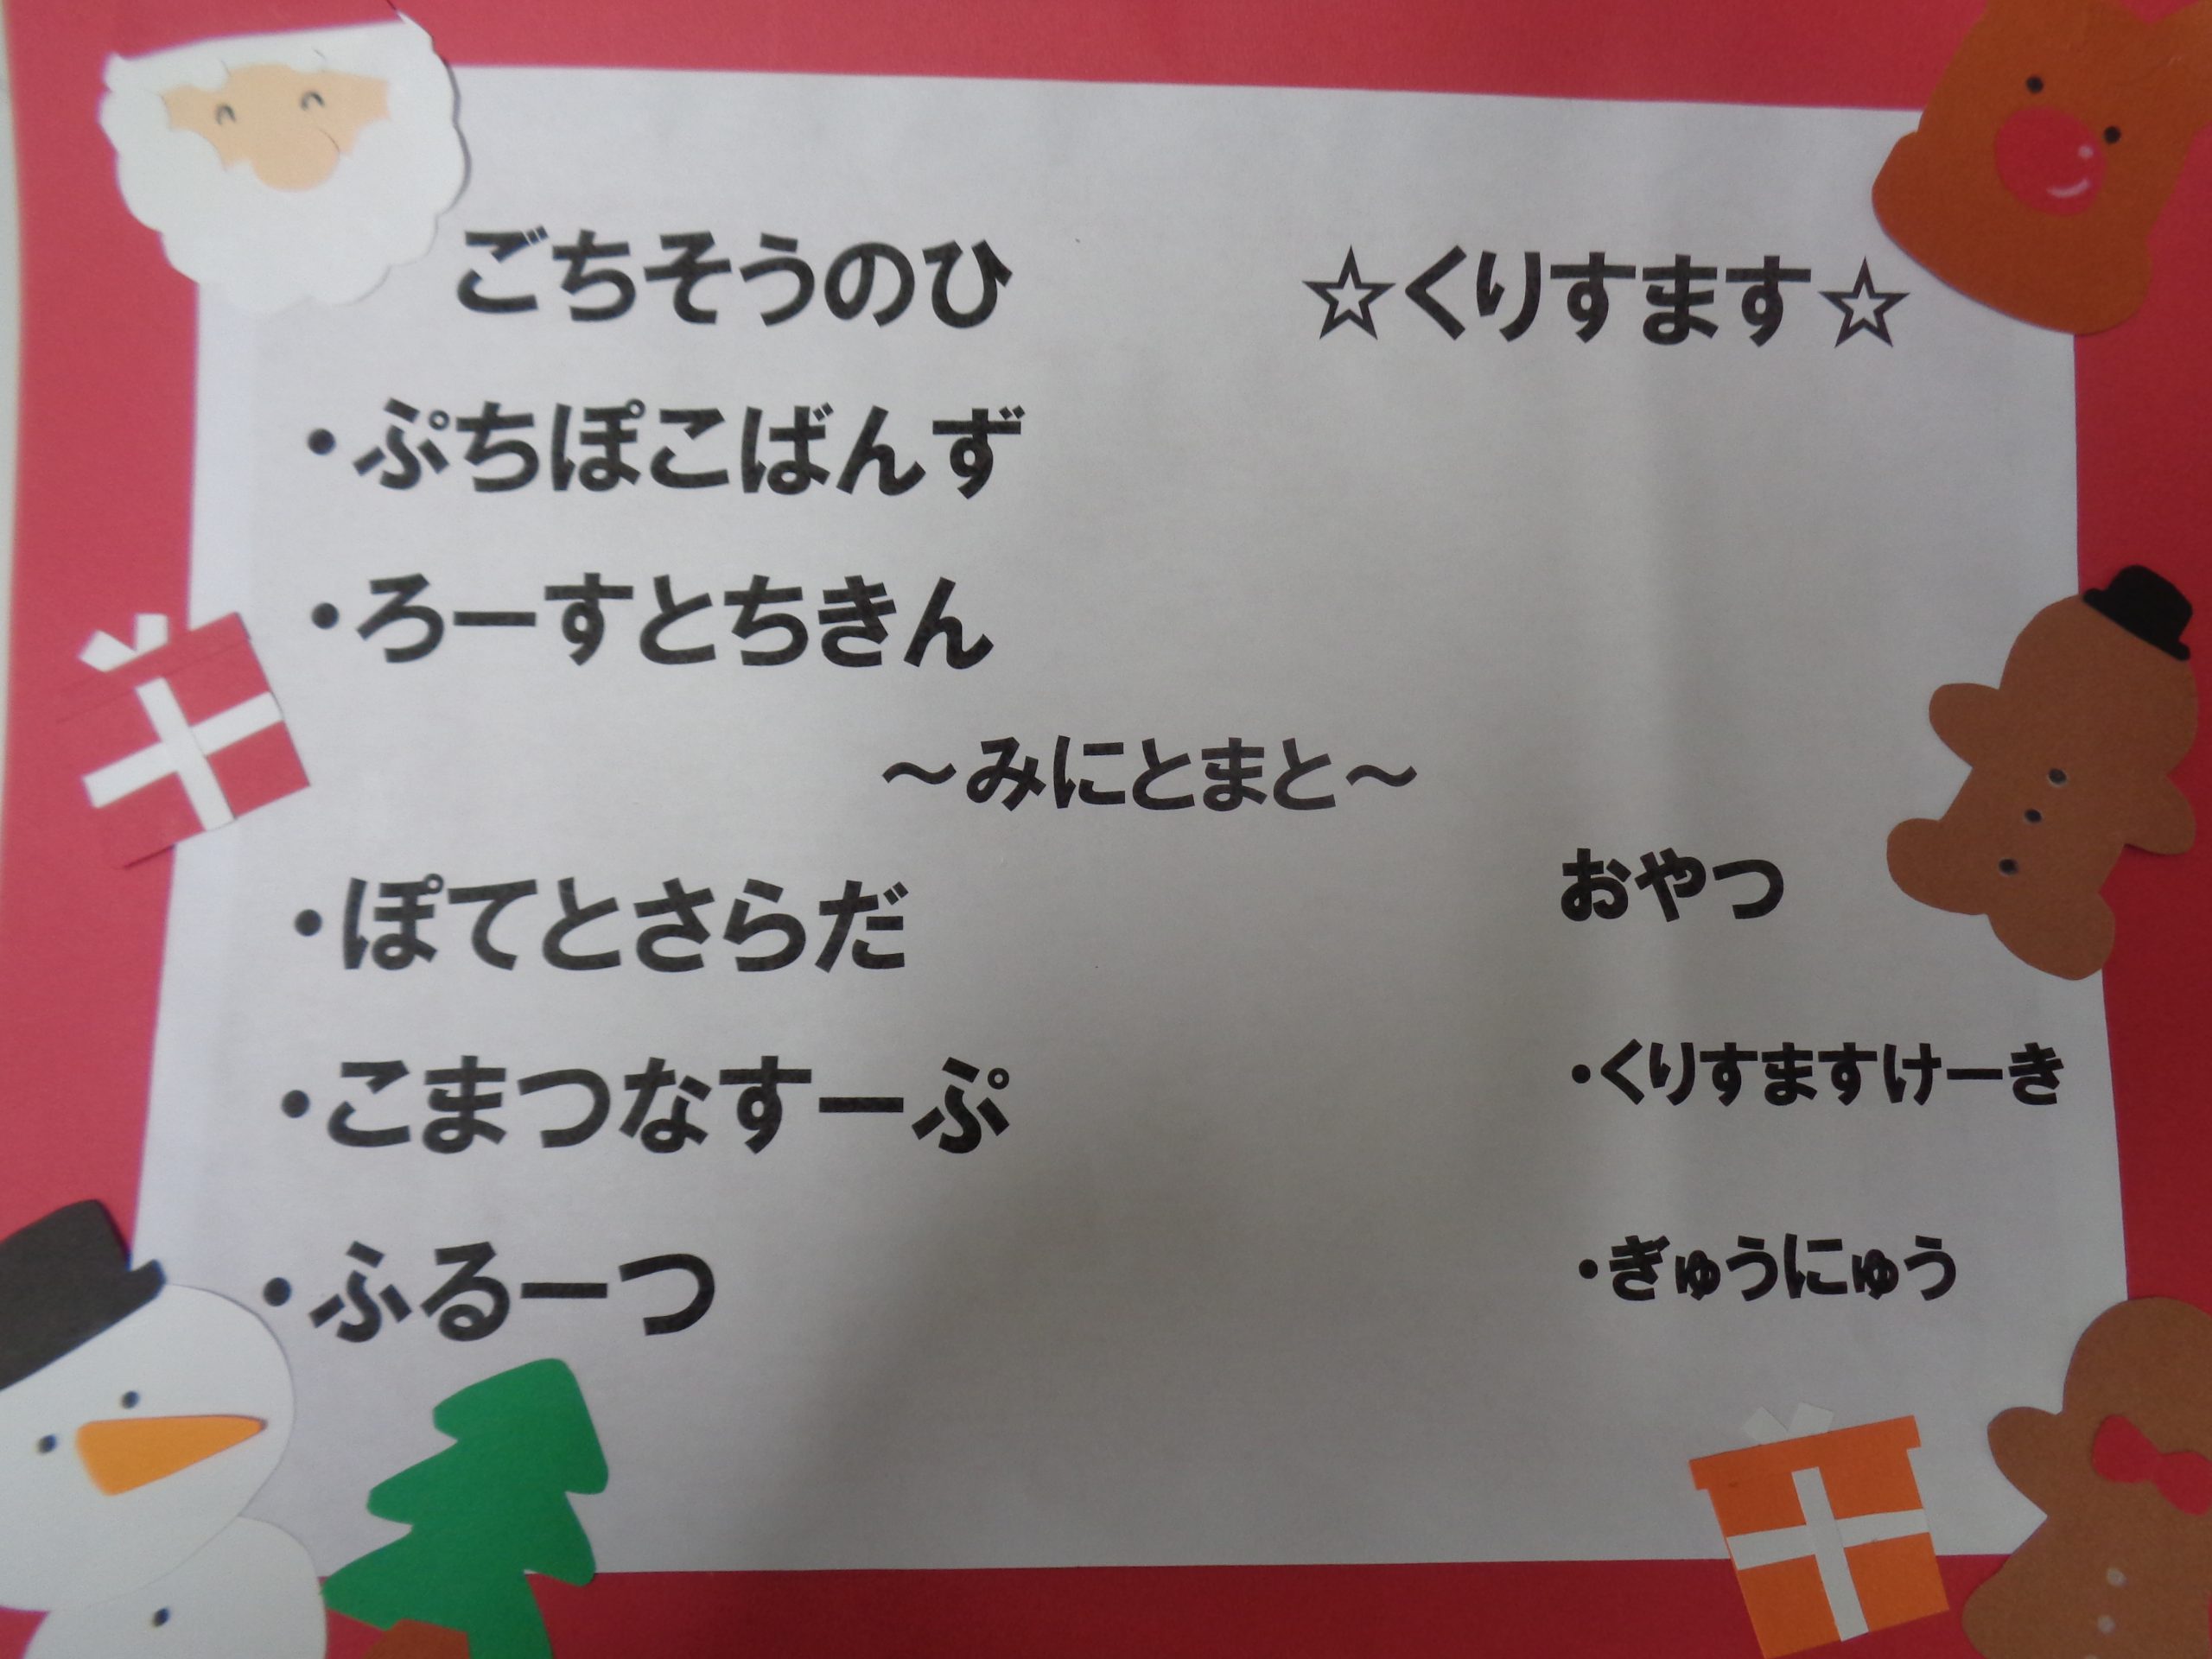 ごちそうのひ ☆くりすます☆
・ぷちぽこばんず
・ろーすとちきん
～みにとまと～
・ぽてとさらだ
・こまつなすーぷ
・ふるーつ
おやつ
・くりすますけーき
・ぎゅうにゅう